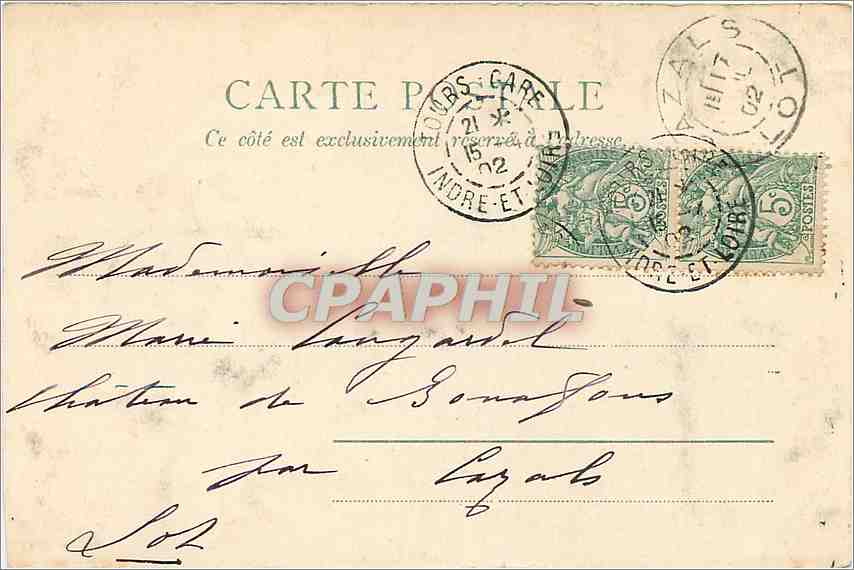 CARTE POSTALE
Ce côté est exclusivement réservé à l'adresse
TOURS-GARE
21
15
02
INDRE-ET-LOIRE
CAZALS
17
02
LOT
5c
POSTES
5c
POSTES
INDRE-ET-LOIRE
CPAPHIL
Mademoiselle
Marie
Château de Bonaffous
par Cazals
Lot